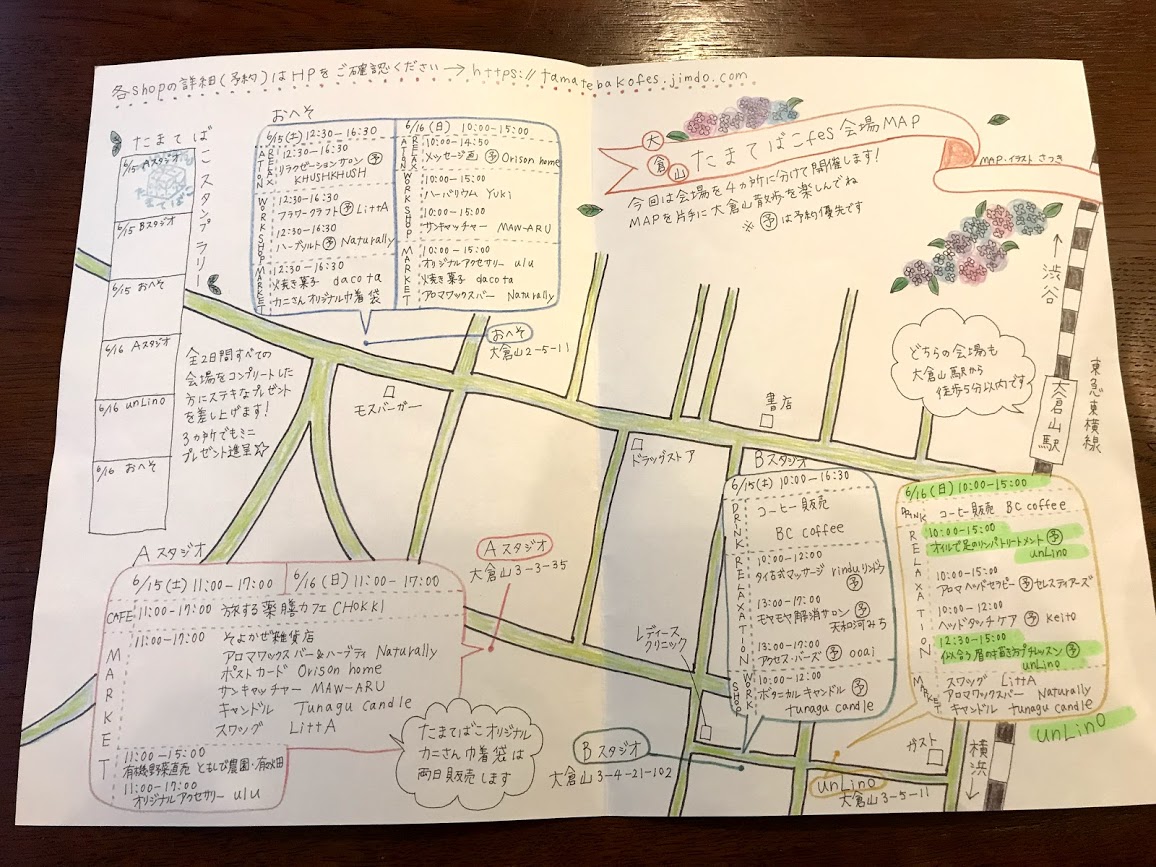 各shopの詳細(予約)はHPをご確認ください→https://tamatebakofes.jimdo.com
大倉山
たまてばこfes会場MAP
MAP・イラスト さつき
今回は会場を4か所に分けて開催します!
MAPを片手に大倉山散歩を楽しんでね
※予は予約優先です
たまてばこスタンプラリー
6/15 Aスタジオ
6/15 Bスタジオ
6/15 おへそ
6/16 Aスタジオ
6/16 unLino
6/16 おへそ
全2日間すべての
会場をコンプリートした
方にステキなプレゼント
を差し上げます!
3か所でもミニ
プレゼント進呈☆
おへそ
6/15(土)12:30-16:30
RELAXATION
12:30-16:30
リラクゼーションサロン 予
KHUSHKHUSH
WORK SHOP
12:30-16:30
フラワークラフト 予 LittA
12:30-16:30
ハーブソルト 予 Naturally
MARKET
12:30-16:30
焼き菓子 dacota
カニさんオリジナル巾着袋
6/16(日) 10:00-15:00
RELAXATION
10:00-14:50
メッセージ画 予 Orison home
WORK SHOP
10:00-15:00
ハーバリウム Yuki
10:00-15:00
サンキャッチャー MAW-ARU
MARKET
10:00-15:00
オリジナルアクセサリー ulu
焼き菓子 dacota
アロマワックスバー Naturally
おへそ
大倉山2-5-11
モスバーガー
ドラッグストア
書店
どちらの会場も
大倉山駅から
徒歩5分以内です
↑
渋谷
東急東横線
大倉山駅
Aスタジオ
6/15(土) 11:00-17:00
6/16(日) 11:00-17:00
CAFE
11:00-17:00 旅する薬膳カフェ CHOKKI
MARKET
11:00-17:00 そよかぜ雑貨店
アロマワックスバー&ハーブティ Naturally
ポストカード Orison home
サンキャッチャー MAW-ARU
キャンドル Tunagu candle
スワッグ LittA
11:00-15:00
有機野菜直売 ともしび農園・有の畑
11:00-17:00
オリジナルアクセサリー ulu
Aスタジオ
大倉山3-3-35
たまてばこオリジナル
カニさん巾着袋は
両日販売します
レディース
クリニック
Bスタジオ
6/15(土) 10:00-16:30
DRINK
コーヒー販売
BC coffee
RELAXATION
10:00-12:00
タイ古式マッサージ rinduリンドゥ
予
13:00-17:00
モヤモヤ解消サロン 予
天和河みち
13:00-17:00
アクセス・バーズ 予 ooai
WORK SHOP
10:00-12:00
ボタニカルキャンドル 予
tunagu candle
Bスタジオ
大倉山3-4-21-102
6/16(日) 10:00-15:00
DRINK
コーヒー販売 BC coffee
RELAXATION
10:00-15:00
オイルで足のリンパトリートメント 予
unLino
10:00-15:00
アロマヘッドセラピー 予 セレスティアーズ
10:00-12:00
ヘッドタッチケア 予 keito
12:30-15:00
似合う眉の描き方プチレッスン 予
unLino
MARKET
スワッグ LittA
アロマワックスバー Naturally
キャンドル tunagu candle
unLino
ガスト
横浜
↓
unLino
大倉山3-5-11